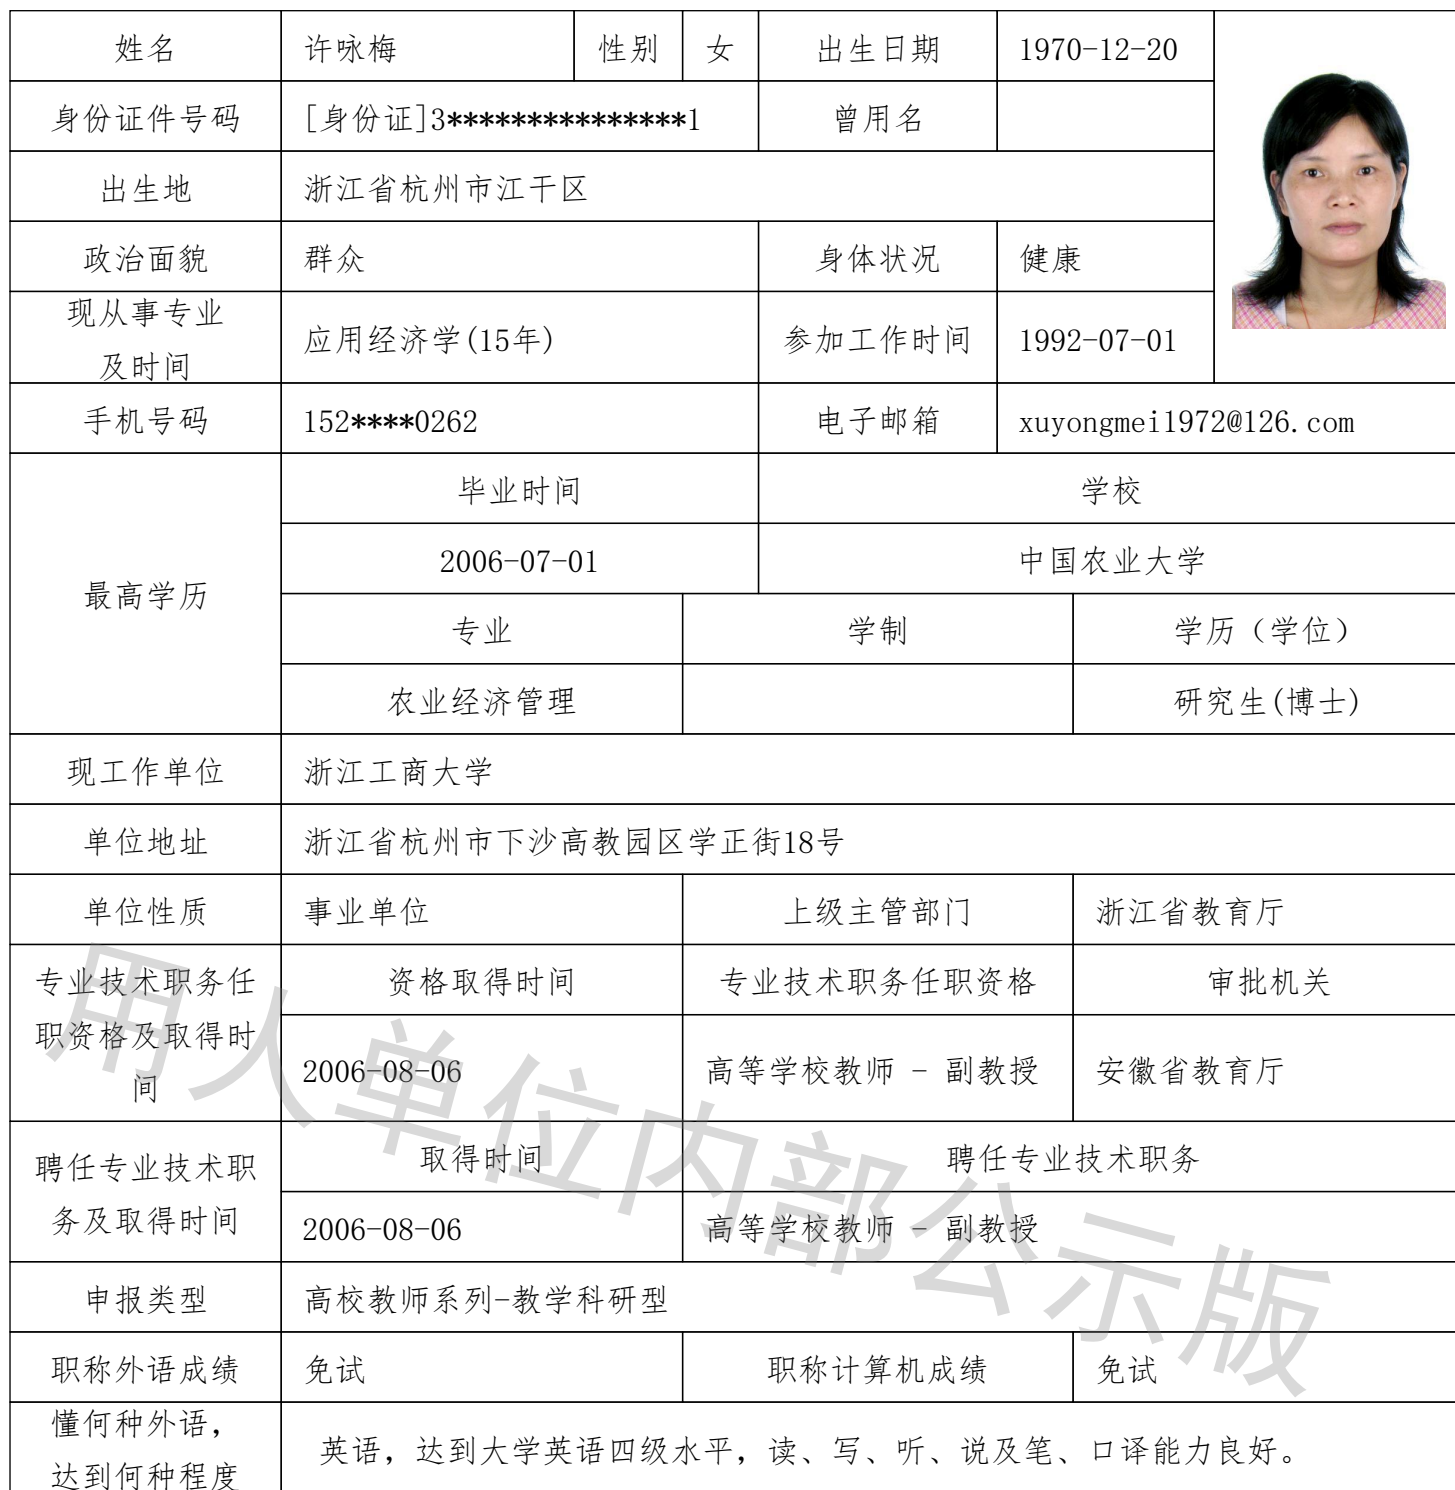 姓名 许咏梅 性别 女 出生日期 1970-12-20
身份证件号码 [身份证]3***************1 曾用名
出生地 浙江省杭州市江干区
政治面貌 群众 身体状况 健康
现从事专业
及时间
应用经济学(15年) 参加工作时间 1992-07-01
手机号码 152****0262 电子邮箱 xuyongmei1972@126.com
最高学历
毕业时间 学校
2006-07-01 中国农业大学
专业 学制 学历（学位）
农业经济管理 研究生(博士)
现工作单位 浙江工商大学
单位地址 浙江省杭州市下沙高教园区学正街18号
单位性质 事业单位 上级主管部门 浙江省教育厅
专业技术职务任
职资格及取得时
间
资格取得时间 专业技术职务任职资格 审批机关
2006-08-06 高等学校教师 - 副教授 安徽省教育厅
聘任专业技术职
务及取得时间
取得时间 聘任专业技术职务
2006-08-06 高等学校教师 - 副教授
申报类型 高校教师系列-教学科研型
职称外语成绩 免试 职称计算机成绩 免试
懂何种外语，
达到何种程度
英语，达到大学英语四级水平，读、写、听、说及笔、口译能力良好。
用人单位内部公示版